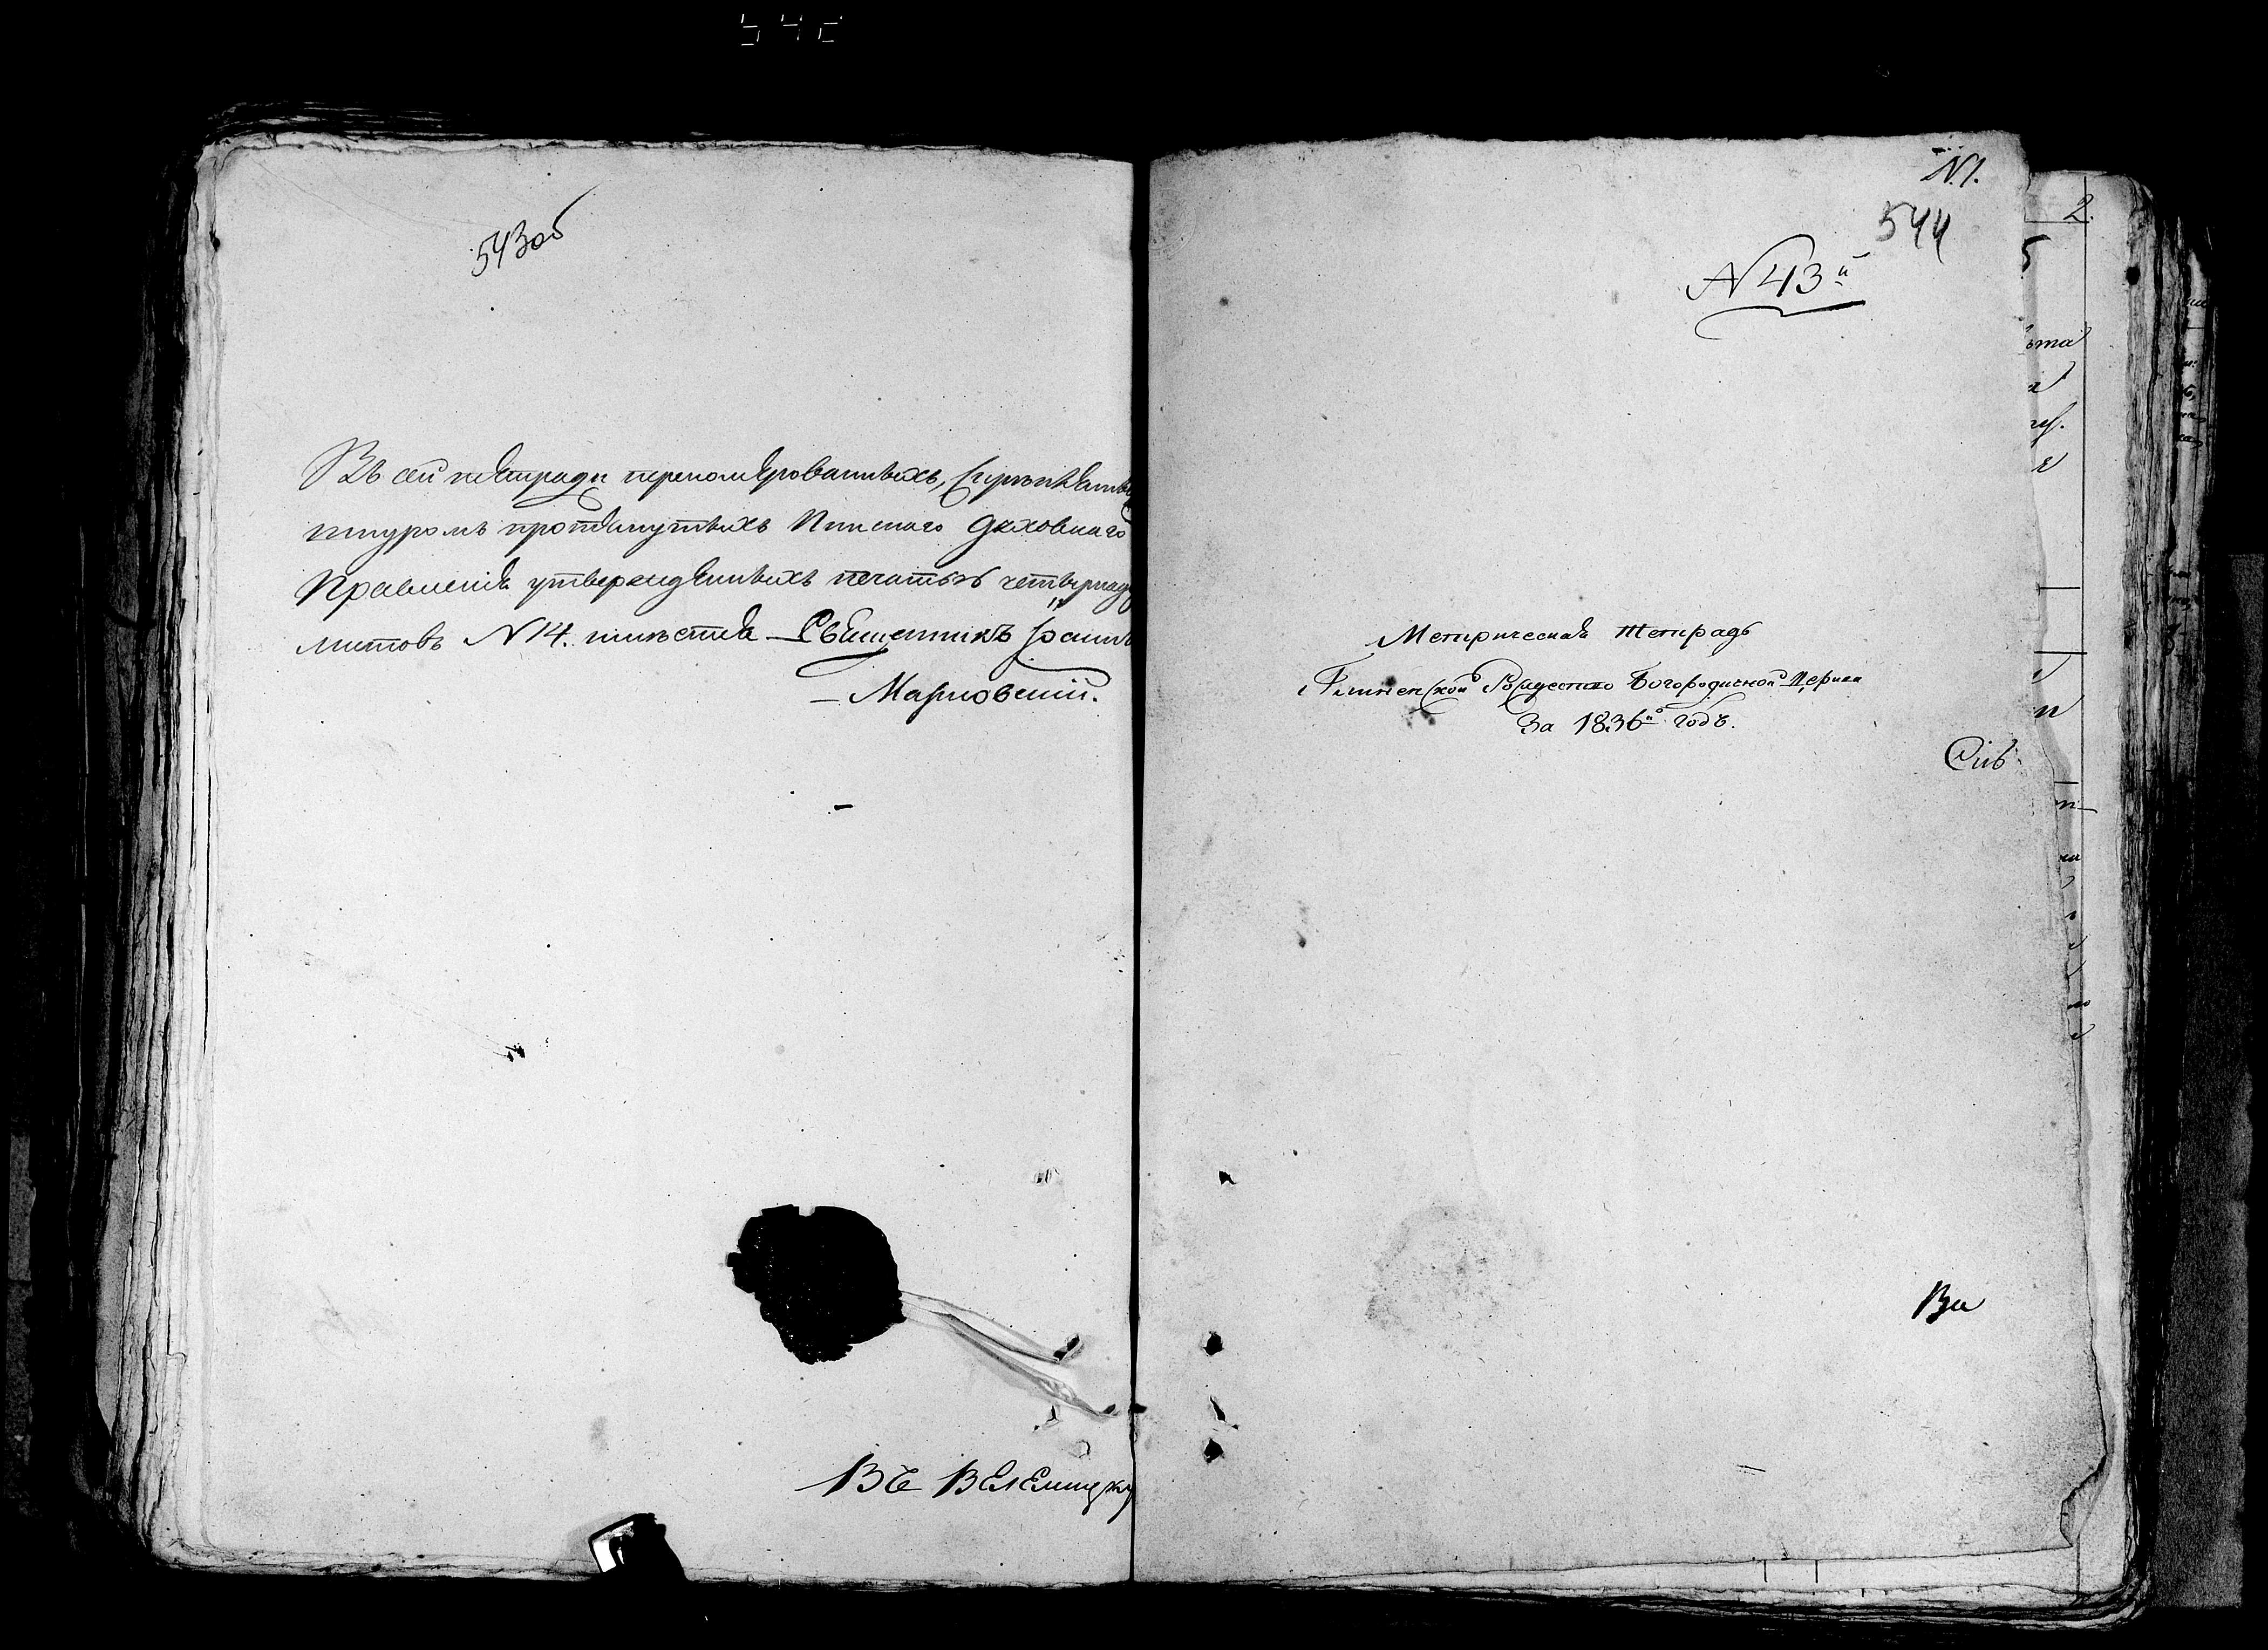 543об
Въ сей тетради переномерованныхъ, скрѣпленны
шнуромъ протянутыхъ Пинскаго Духовнаго
Правленія утвержденныхъ печатью четырнадц
листовъ N 14. имѣется Священникъ Іоаннъ
Марковскій.
ВЪ ВЕЛЕмицку
N.1.
544
N 43й
Метрическая Тетрадь
Рождество Богородичной Церкви
За 1836й годъ.
Сія
2.